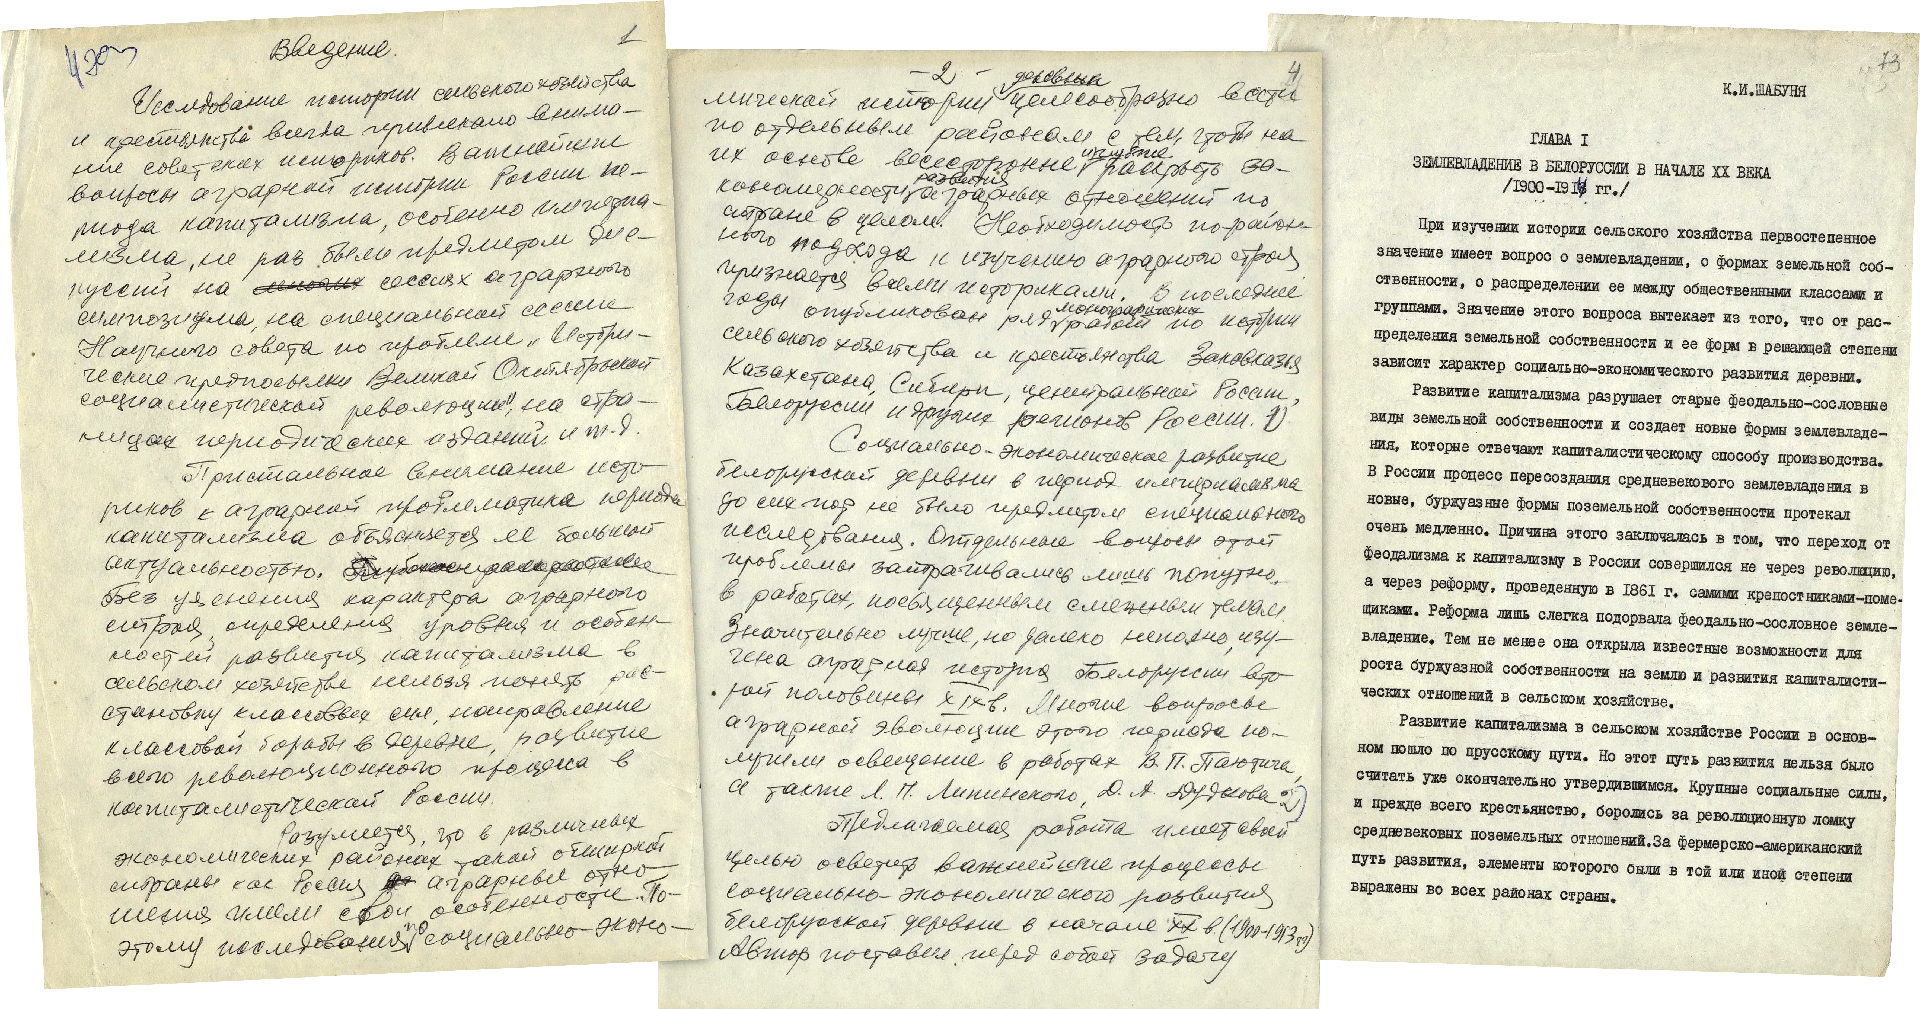 Введение.
1
Исследование истории сельского хозяйства
и крестьянства всегда привлекало внима-
ние советских историков. Важнейшие
вопросы аграрной истории России пе-
риода капитализма, особенно империа-
лизма, не раз были предметом дис-
куссий на многих сессиях аграрного
симпозиума, на специальной сессии
Научного совета по проблеме „Истори-
ческие предпосылки Великой Октябрьской
социалистической революции", на стра-
ницах периодических изданий и т.д.
Пристальное внимание исто-
риков к аграрной проблематике периода
капитализма объясняется ее большой
актуальностью.
Без уяснения характера аграрного
строя, определения уровня и особен-
ностей развития капитализма в
сельском хозяйстве нельзя понять рас-
становку классовых сил, направление
классовой борьбы в деревне, развитие
всего революционного процесса в
капиталистической России.
Разумеется, что в различных
экономических районах такой обширной
страны как Россия аграрные отно-
шения имели свои особенности. По-
этому исследования по социально-эконо-
- 2 -
4
мической истории целесообразно вести
по отдельным районам с тем, чтобы на
их основе всесторонне и глубже раскрыть за-
кономерности развития аграрных отношений по
стране в целом. Необходимость порайон-
ного подхода к изучению аграрного строя
признается всеми историками. В последние
годы опубликован ряд монографических работ по истории
сельского хозяйства и крестьянства Закавказья,
Казахстана, Сибири, центральной России,
Белоруссии и других регионов России. 1)
Социально-экономическое развитие
белорусской деревни в период империализма
до сих пор не было предметом специального
исследования. Отдельные вопросы этой
проблемы затрагивались лишь попутно,
в работах, посвященным смежным темам.
Значительно лучше, но далеко неполно, изу-
чена аграрная история Белоруссии вто-
рой половины XIX в. Многие вопросы
аграрной эволюции этого периода по-
лучили освещение в работах В.П. Панютича,
а также Л.П. Липинского, Д.А. Дудкова 2)
Предлагаемая работа имеет своей
целью осветить важнейшие процессы
социально-экономического развития
белорусской деревни в начале XX в. (1900-1913 гг)
Автор поставил перед собой задачу
73
К.И.ШАБУНЯ
ГЛАВА I
ЗЕМЛЕВЛАДЕНИЕ В БЕЛОРУССИИ В НАЧАЛЕ XX ВЕКА
/1900-1914 гг./
При изучении истории сельского хозяйства первостепенное
значение имеет вопрос о землевладении, о формах земельной соб-
ственности, о распределении ее между общественными классами и
группами. Значение этого вопроса вытекает из того, что от рас-
пределения земельной собственности и ее форм в решающей степени
зависит характер социально-экономического развития деревни.
Развитие капитализма разрушает старые феодально-сословные
виды земельной собственности и создает новые формы землевладе-
ния, которые отвечают капиталистическому способу производства.
В России процесс пересоздания средневекового землевладения в
новые, буржуазные формы поземельной собственности протекал
очень медленно. Причина этого заключалась в том, что переход от
феодализма к капитализму в России совершился не через революцию,
а через реформу, проведенную в 1861 г. самими крепостниками-поме-
щиками. Реформа лишь слегка подорвала феодально-сословное земле-
владение. Тем не менее она открыла известные возможности для
роста буржуазной собственности на землю и развития капиталисти-
ческих отношений в сельском хозяйстве.
Развитие капитализма в сельском хозяйстве России в основ-
ном пошло по прусскому пути. Но этот путь развития нельзя было
считать уже окончательно утвердившимся. Крупные социальные силы,
и прежде всего крестьянство, боролись за революционную ломку
средневековых поземельных отношений.За фермерско-американский
путь развития, элементы которого были в той или иной степени
выражены во всех районах страны.